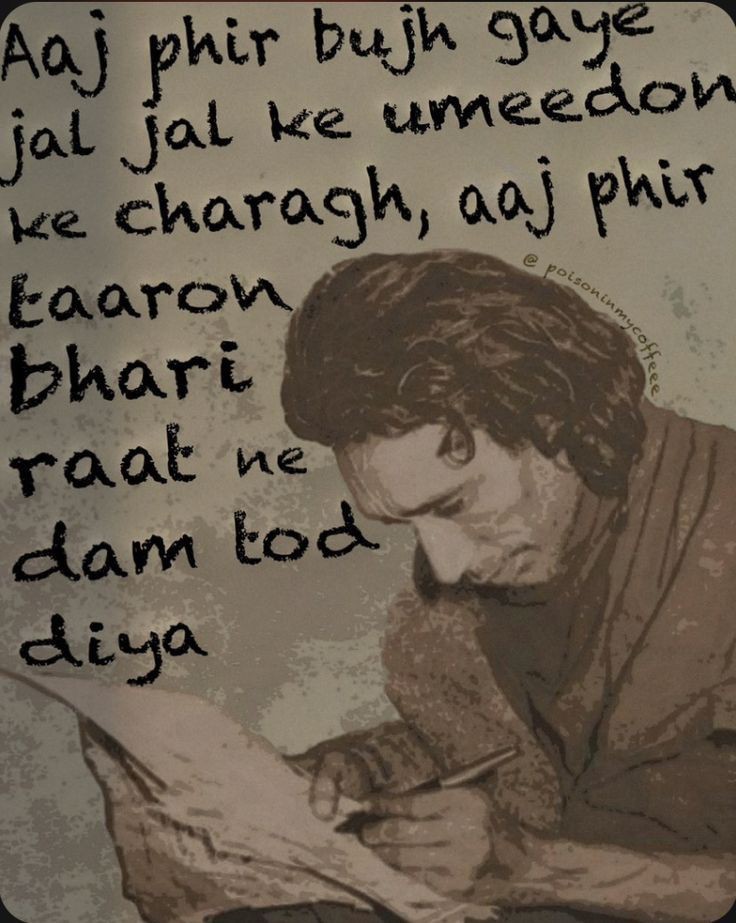 Aaj phir bujh gaye
jal jal ke umeedon
ke charagh, aaj phir
taaron
bhari
raat ne
dam tod
diya
@poisoninmycoffeee